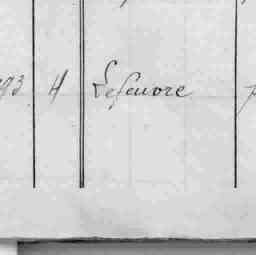 93 4 Lefeuvre